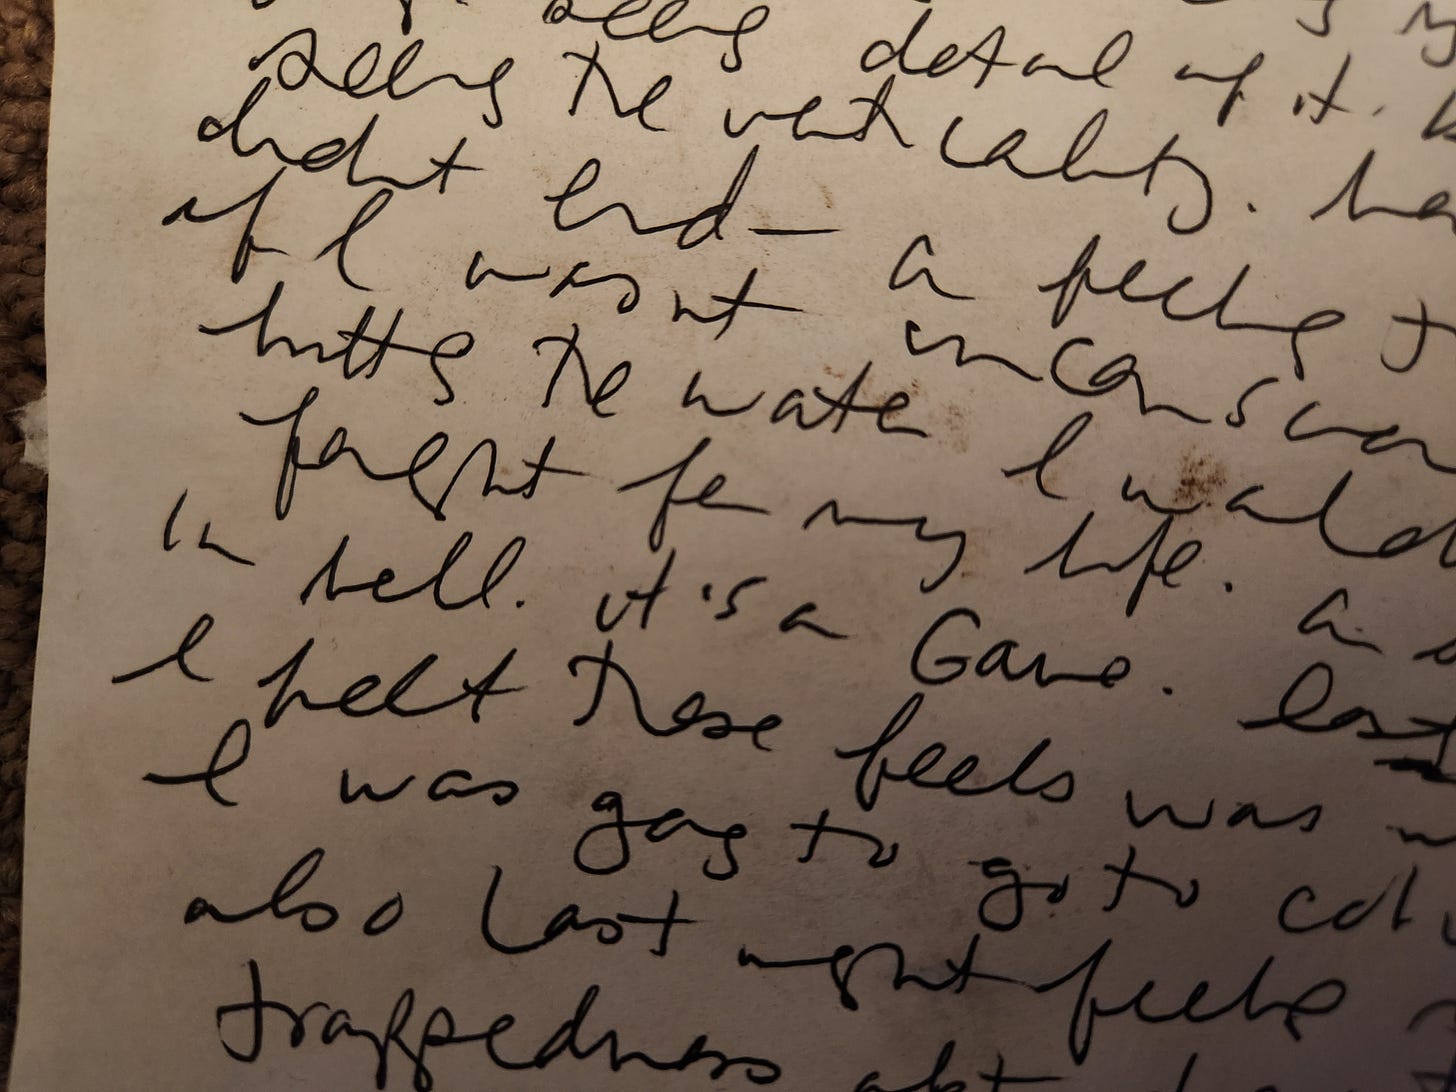 seeing
seeing the detail of it.
didn't end — verticality.
if I wasn't a feeling
hitting the water unconscious
fought for my life. I would
in hell. it's a Game.
I felt these feels was last
I was going to go to
also last night feeling
trappedness abt